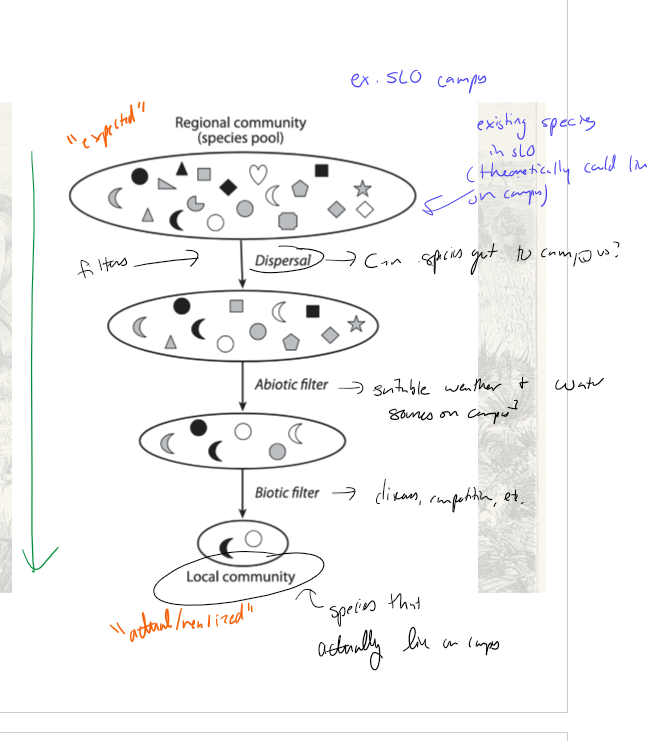 ex. SLO campus
"expected"
Regional community
(species pool)
existing species
in SLO
(theoretically could live
on campus)
filters
Dispersal
Can species get to campus?
Abiotic filter
suitable weather + water
sources on campus?
Biotic filter
disease, competition, etc.
Local community
"actual/realized"
species that
actually live on campus